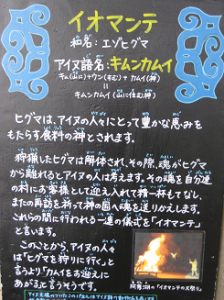 イオマンテ
和名：エゾヒグマ
アイヌ語名：キムンカムイ
キム(山に)+ウン(すむ)+カムイ(神)
＝
キムンカムイ(山に住む神)
ヒグマは、アイヌの人々にとって豊かな恵みを
もたらす食料の神とされます。
狩猟したヒグマは解体され、その際、魂がヒグマ
から離れるとアイヌの人は考えます。その魂を自分達
の村にお客様として迎え入れて精一杯もてなし、
またの再訪を祈って神の国へ魂を送りかえします。
これらの間に行われる一連の儀式を「イオマンテ」
と言います。
このことから、アイヌの人々
は「ヒグマを狩りに行く」と
言うより「カムイをお迎えに
あがると言うそうです。
阿寒湖の「イオマンテの火祭り」